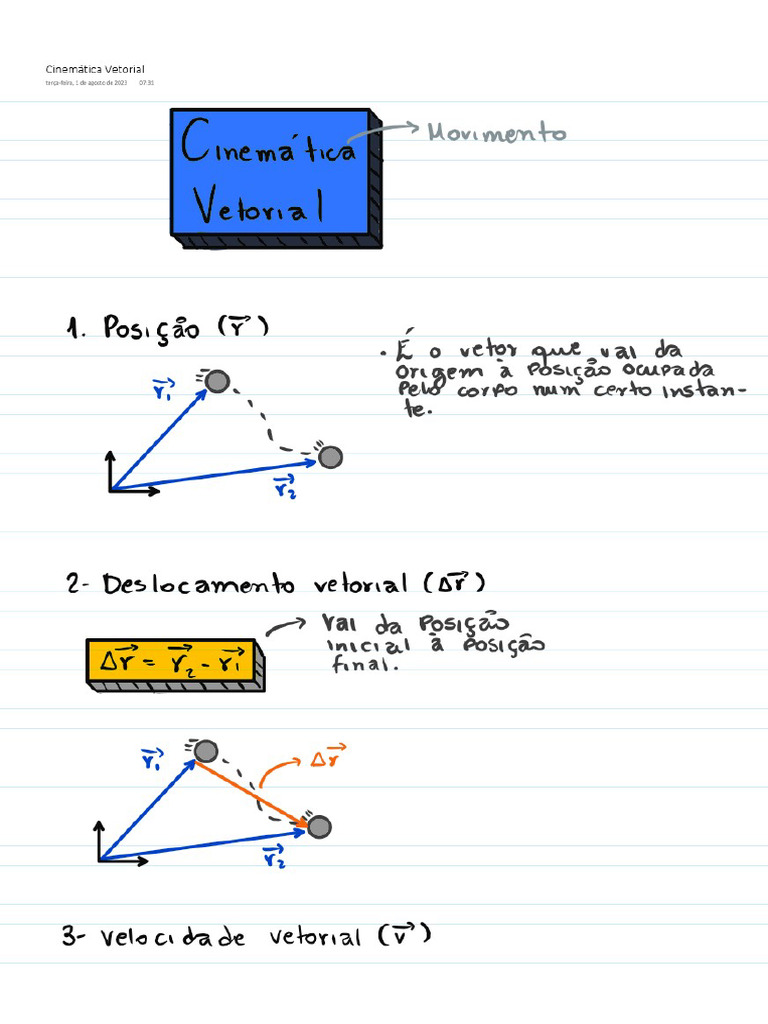 Cinemática Vetorial
terça-feira, 1 de agosto de 2023 07:31
Cinemática
Vetorial
Movimento
1. Posição (r⃗)
r⃗₁
r⃗₂
• É o vetor que vai da
origem à posição ocupada
pelo corpo num certo instan-
te.
2- Deslocamento vetorial (Δr⃗)
Δr⃗ = r⃗₂ - r⃗₁
Vai da posição
inicial à posição
final.
r⃗₁
Δr⃗
r⃗₂
3- Velocidade vetorial (v⃗)